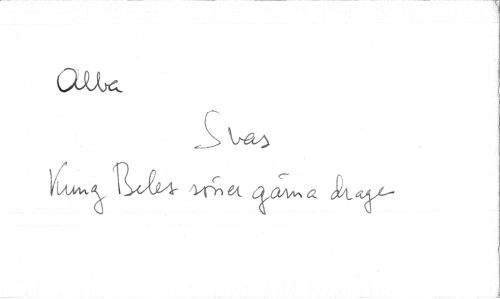 Alba
Svas
Kung Beles söner gärna drage